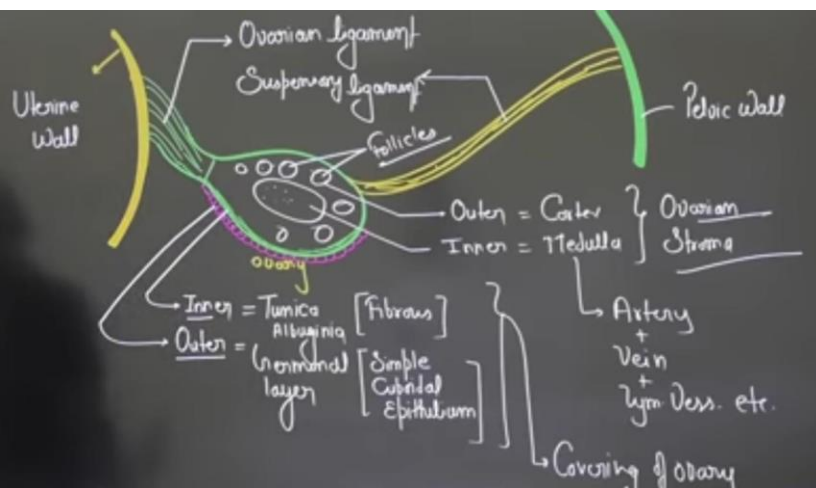 Ovarian ligament
Suspensory ligament
Uterine
Wall
Pelvic Wall
Follicles
Outer = Cortex
Inner = Medulla
Ovarian
Stroma
Ovary
Inner = Tunica
Albuginia
[Fibrous]
Outer = Germinal
layer
[Simple
Cuboidal
Epithelium]
Artery
+
Vein
+
Lym. Vess. etc.
Covering of ovary